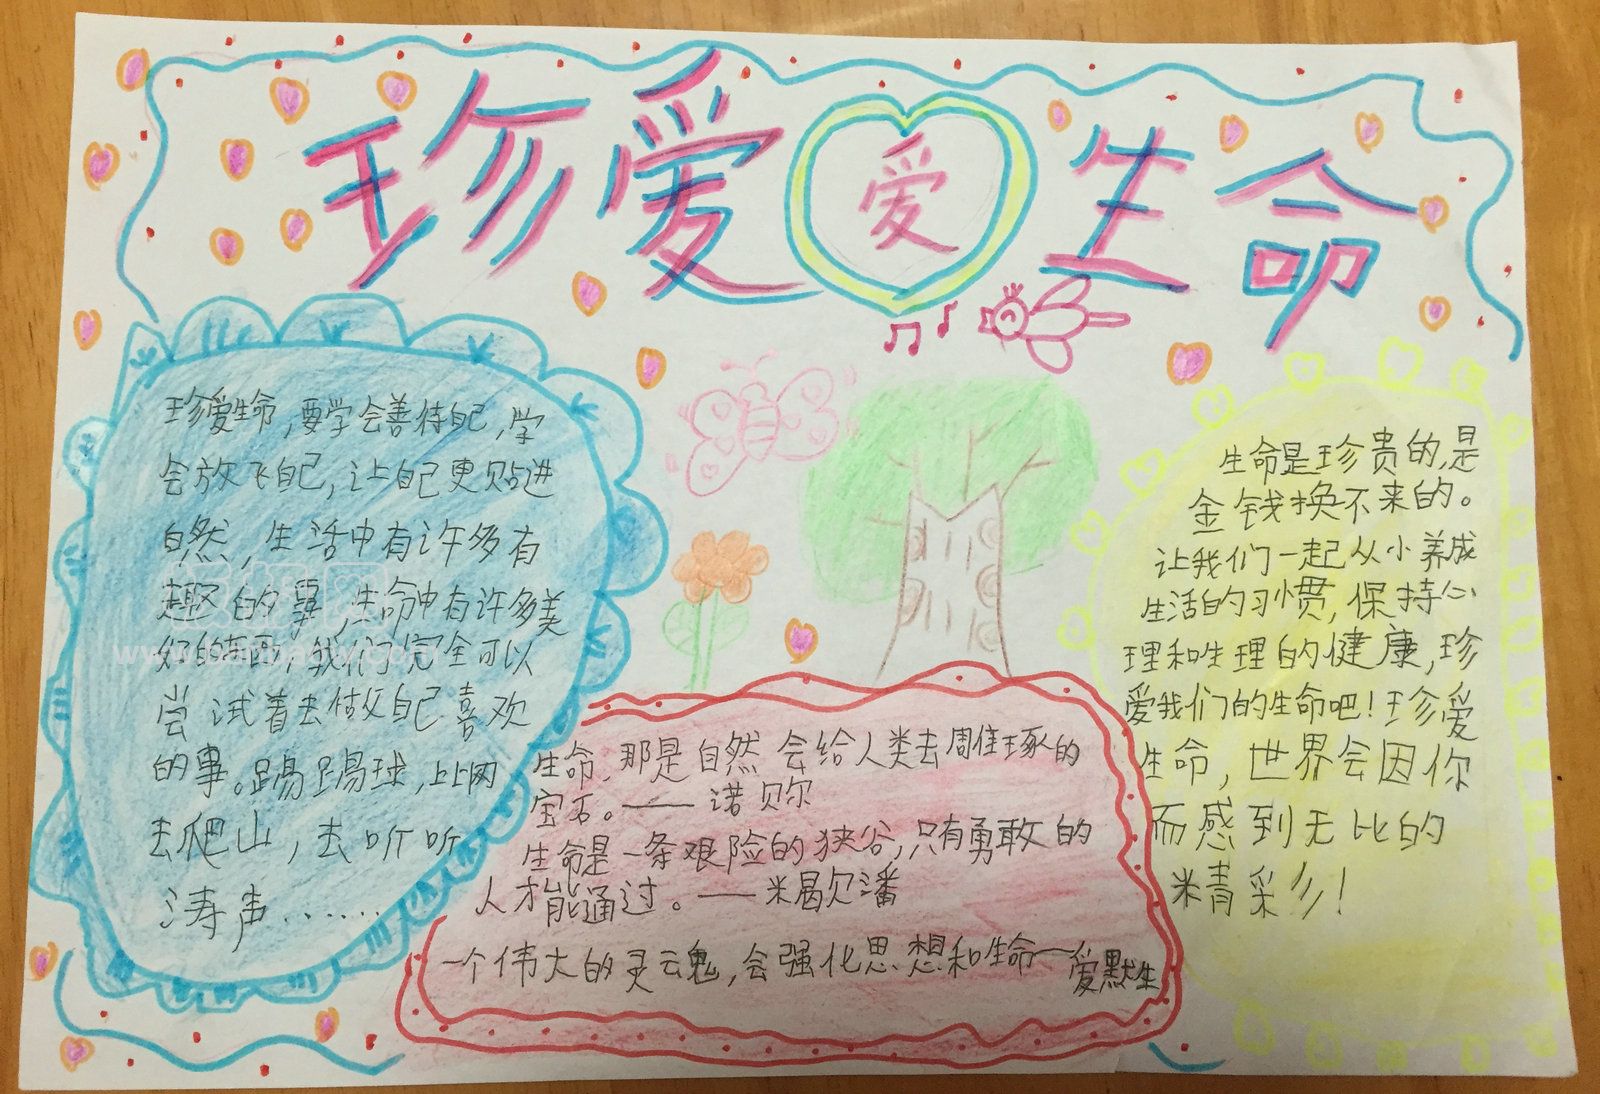 珍爱生命
爱
珍爱生命,要学会善待自己,学
会放飞自己,让自己更贴进
自然,生活中有许多有
趣的事,生命中有许多美
好的东西,我们完全可以
尝试着去做自己喜欢
的事。踢踢球,上上网
去爬山,去听听
涛声……
生命,那是自然会给人类去周隹琢的
宝石。——诺贝尔
生命是一条艰险的狭谷,只有勇敢的
人才能通过。——米曷尔潘
一个伟大的灵云魂,会强化思想和生命一爱默生
生命是珍贵的,是
金钱换不来的。
让我们一起从小养成
生活的习惯,保持心
理和生理的健康,珍
爱我们的生命吧!珍爱
生命,世界会因你
而感到无比的
米青采彡!